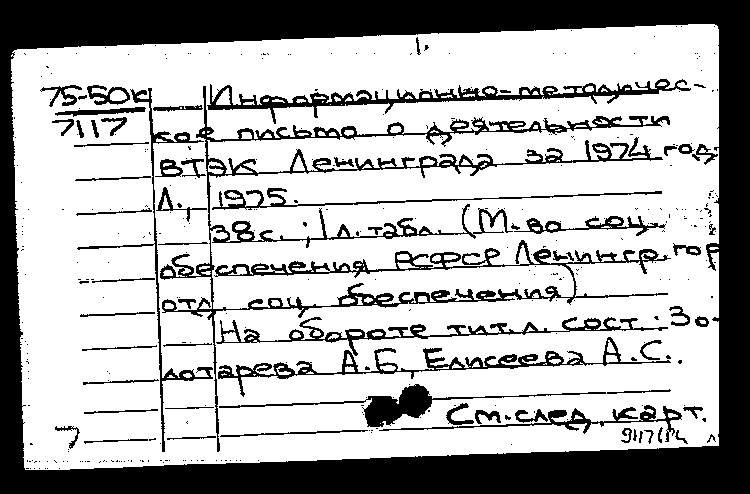 1.
75-50к Информационно-методичес-
7117 кое письмо о деятельности
ВТЭК Ленинграда за 1974 год.
Л., 1975.
38с.; 1 л. табл. (М-во соц.
обеспечения РСФСР Ленингр. гор
отд. соц. обеспечения).
На обороте тит. л. сост.: Зо-
лотарева А.Б., Елисеева А.С.
См. след. карт.
7